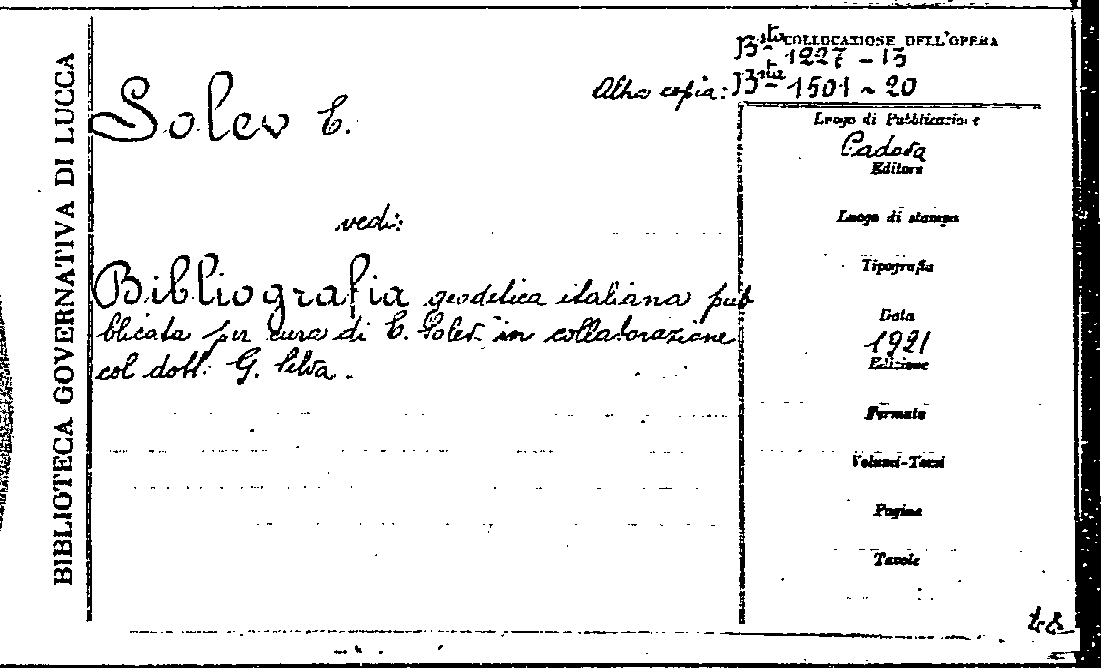 BIBLIOTECA GOVERNATIVA DI LUCCA
COLLOCAZIONE DELL'OPERA
Bsta 1227 - 13
Altra copia: Bsta 1501 - 20
Soler E.
vedi:
Bibliografia geodetica italiana pub
blicata per cura di E. Soler in collaborazione
col dott. G. Silva.
Luogo di Pubblicazione
Padova
Editore
Luogo di stampa
Tipografia
Data
1921
Edizione
Formato
Volumi-Tomi
Pagine
Tavole